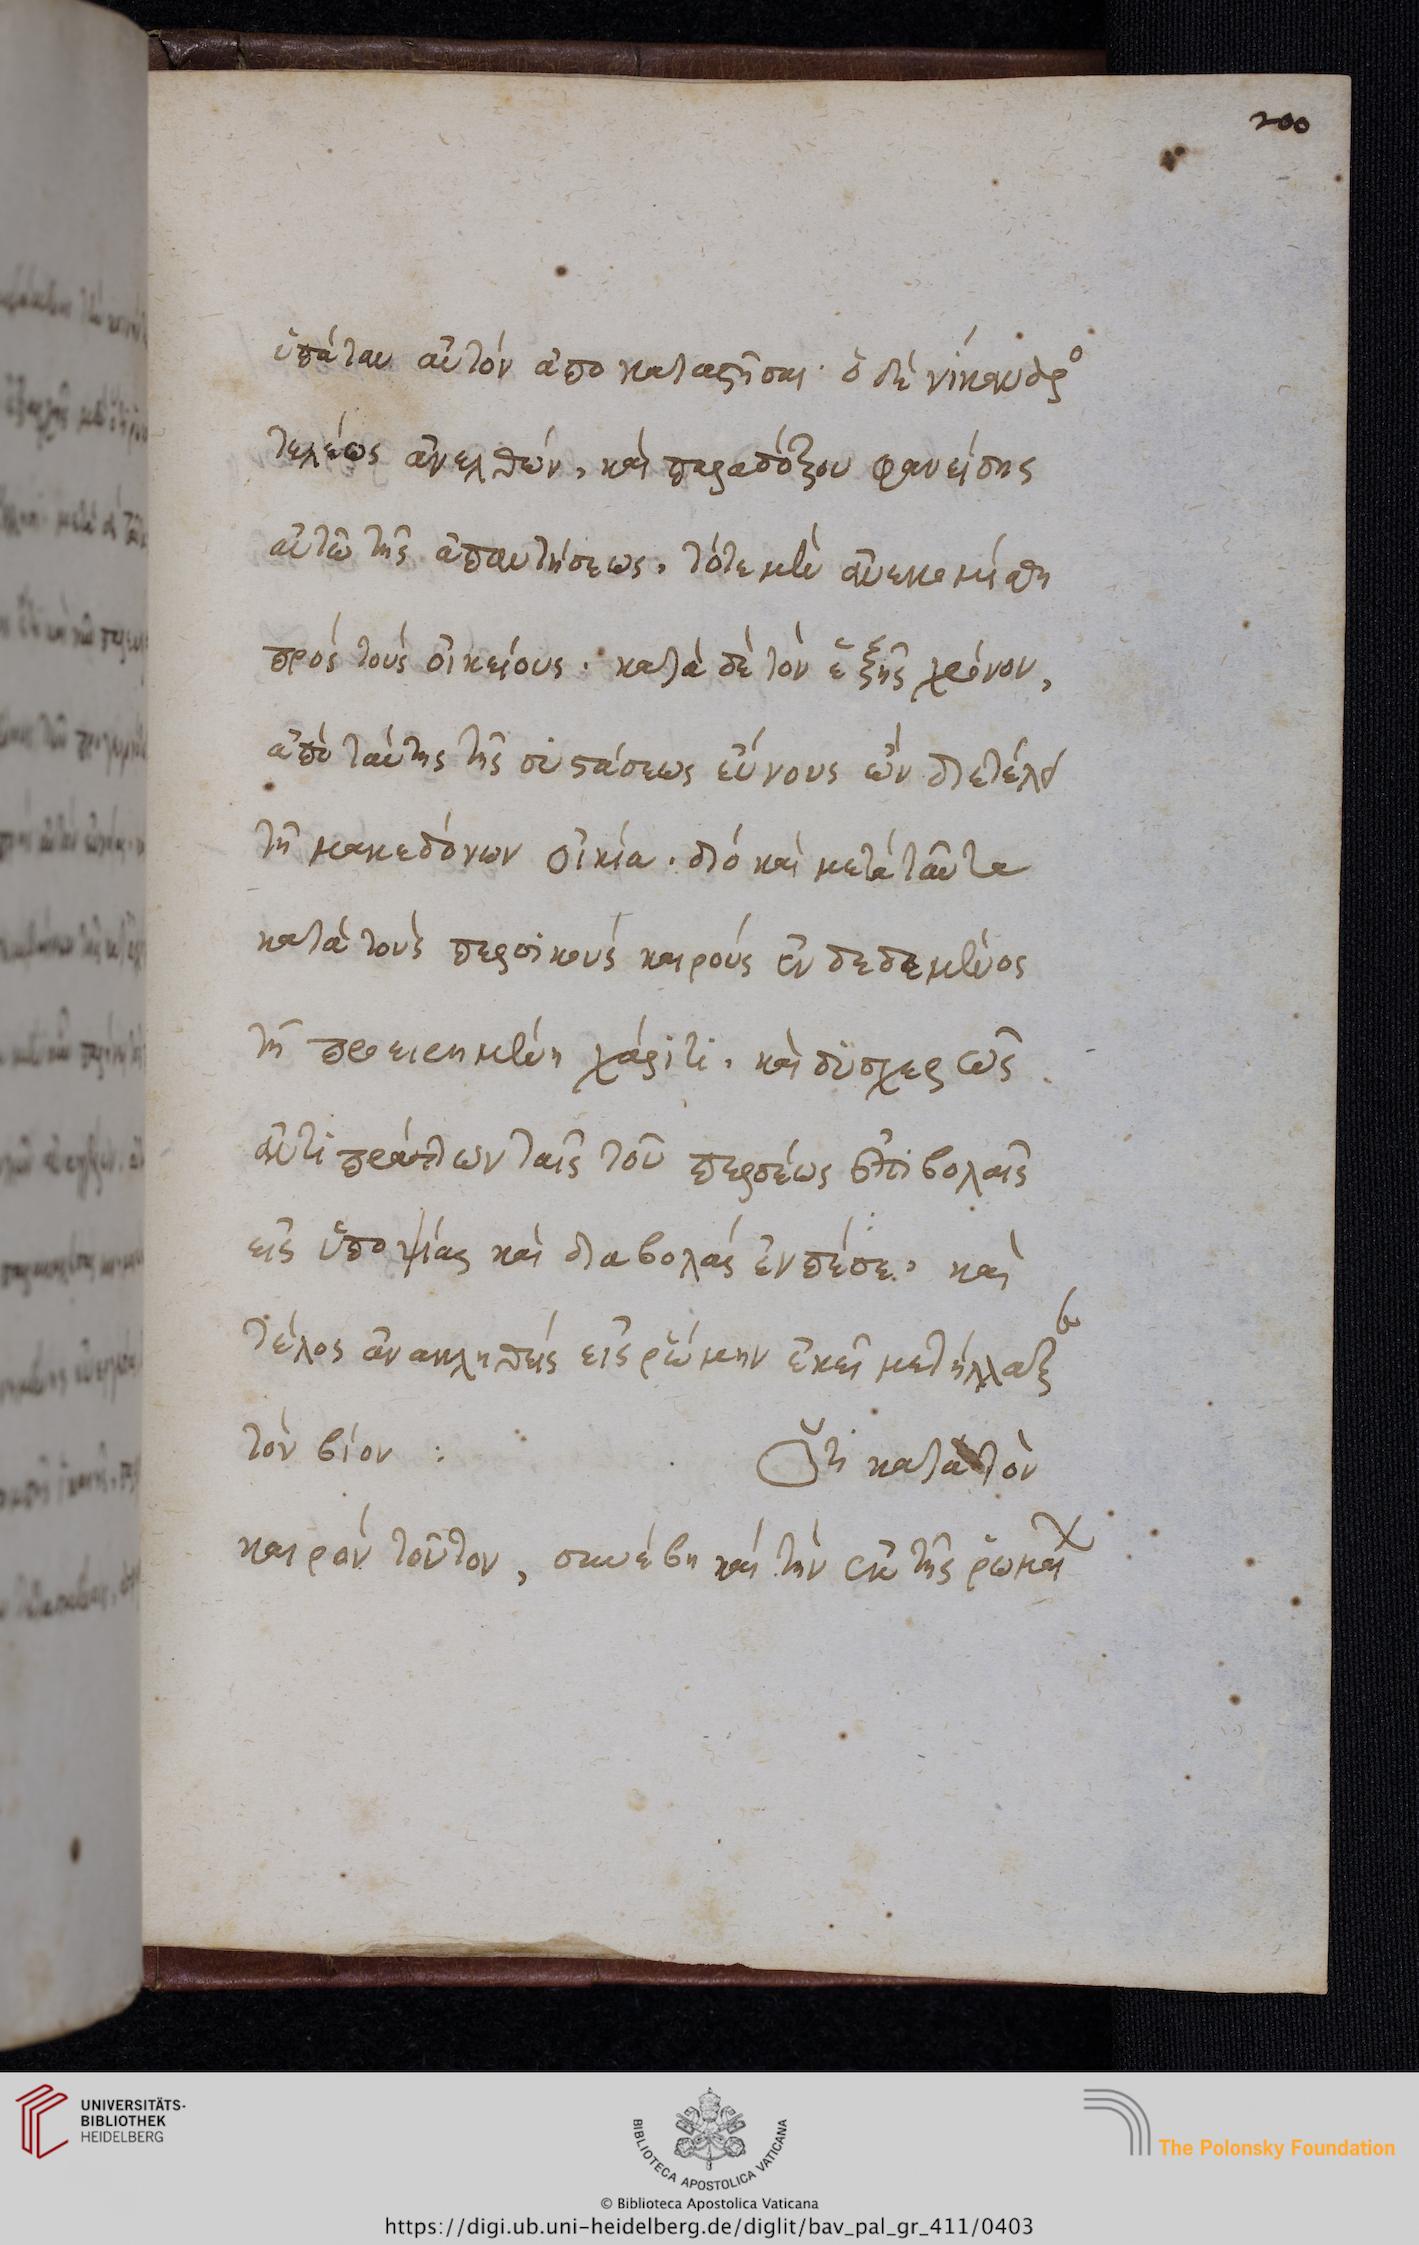 200
ὑπάταν αὐτὸν ἀποκαταστῆσαι· ὁ δὲ νίκανδρο
τελέως ἀνελθών, καὶ παραδόξου φανείσης
αὐτῶ τῆς ἀπαντήσεως. τότε μὲν ἀνεκομίσθη
πρὸς τοὺς οἰκείους. κατὰ δὲ τὸν ἑξῆς χρόνον,
ἀπὸ ταύτης τῆς συστάσεως εὔνους ὢν διετέλει
τῆ μακεδόνων οἰκία. διὸ καὶ μετὰ ταῦτα
κατὰ τοὺς περσικοὺς καιροὺς ἐνδεδεμένος
τῆ προειρημένη χάριτι. καὶ δυσχερῶς
ἀντιπράττων ταῖς τοῦ περσέως ἐπιβολαῖς
εἰς ὑποψίας καὶ διαβολὰς ἐνπέσε. καὶ
τέλος ἀνακληθεὶς εἰς ῥώμην ἐκεῖ μετήλλαξεν
τὸν βίον :   Ὅτι κατὰ τὸν
καιρὸν τοῦτον, συνέβη καὶ τὴν ἐκ τῆς ῥωμαι
UNIVERSITÄTS-
BIBLIOTHEK
HEIDELBERG
BIBLIOTECA APOSTOLICA VATICANA
The Polonsky Foundation
© Biblioteca Apostolica Vaticana
https://digi.ub.uni-heidelberg.de/diglit/bav_pal_gr_411/0403